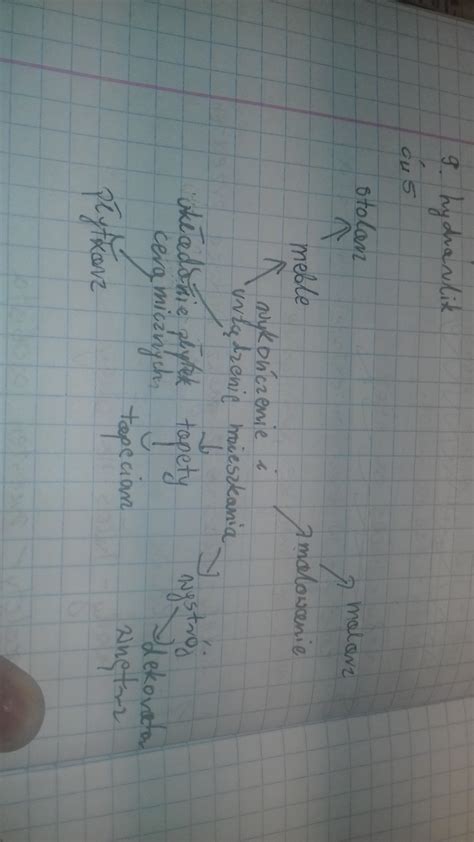 9. hydraulik
ćw 5
stolarz
malarz
meble
malowanie
wykończenie i
urządzenie mieszkania
układanie płytek
ceramicznych
tapety
wystrój
płytkarz
tapeciarz
dekorator
wnętrz